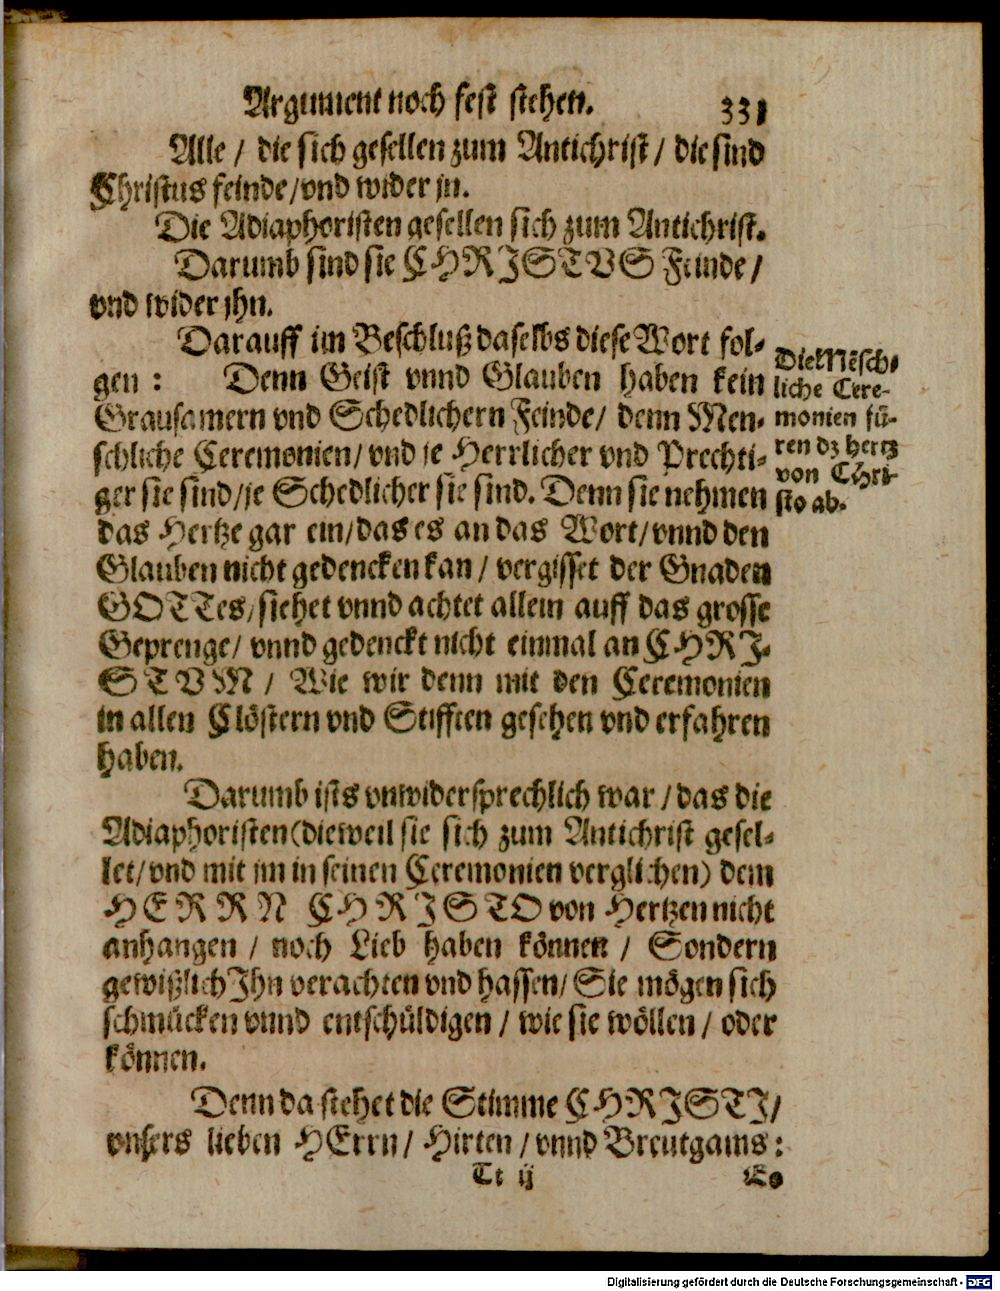 Argument noch fest stehen. 331
Alle / die sich gesellen zum Antichrist / die sind
Christus feinde / vnd wider jn.
Die Adiaphoristen gesellen sich zum Antichrist.
Darumb sind sie CHRISTVS Feinde /
vnd wider jhn.
Darauff im Beschluß daselbs diese Wort fol-
gen : Denn Geist vnnd Glauben haben kein
Grausamern vnd Schedlichern Feinde / denn Men-
schliche Ceremonien / vnd je Herrlicher vnd Prechti-
ger sie sind / je Schedlicher sie sind. Denn sie nehmen
das Hertze gar ein / das es an das Wort / vnnd den
Glauben nicht gedencken kan / vergisset der Gnaden
GOTTes / siehet vnnd achtet allein auff das grosse
Geprenge / vnnd gedenckt nicht einmal an CHRI-
STVM / Wie wir denn mit den Ceremonien
in allen Clöstern vnd Stifften gesehen vnd erfahren
haben.
Die Mēsch-
liche Cere-
monien fü-
ren dz hertz
von CHri-
sto ab.
Darumb ists vnwidersprechlich war / das die
Adiaphoristen (dieweil sie sich zum Antichrist gesel-
let / vnd mit im in seinen Ceremonien verglichen) dem
HERRN CHRISTO von Hertzen nicht
anhangen / noch Lieb haben können / Sondern
gewißlich Ihn verachten vnd hassen / Sie mögen sich
schmücken vnnd entschüldigen / wie sie wöllen / oder
können.
Denn da stehet die Stimme CHRISTI /
vnsers lieben HErrn / Hirten / vnnd Breutgams :
Tt ij
So
Digitalisierung gefördert durch die Deutsche Forschungsgemeinschaft - DFG